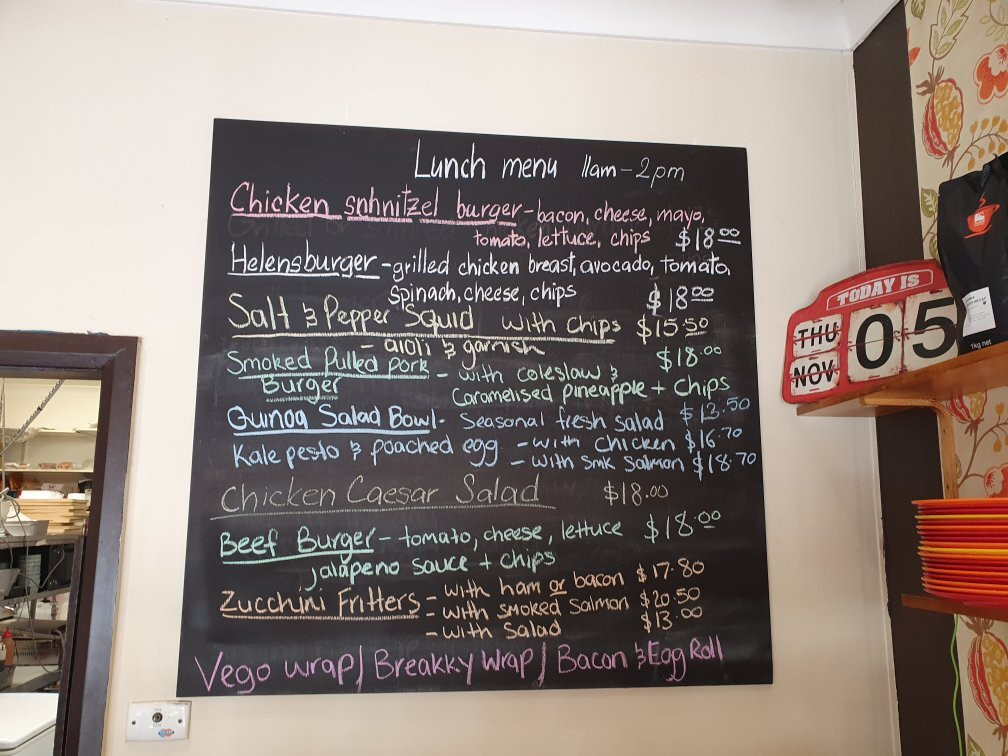 Lunch menu 11am-2pm
Chicken snhnitzel burger - bacon, cheese, mayo,
tomato, lettuce, chips $18.00
Helensburger - grilled chicken breast, avocado, tomato,
Spinach, cheese, chips $18.00
Salt & Pepper Squid with chips $15.50
- aioli & garnish
Smoked Pulled Pork - with coleslaw & $18.00
Burger Caramelised pineapple + chips
Quinoa Salad Bowl - Seasonal fresh salad $12.50
Kale pesto & poached egg - with chicken $16.70
- with Smk Salmon $18.70
Chicken Caesar Salad $18.00
Beef Burger - tomato, cheese, lettuce $18.00
jalapeno sauce + chips
Zucchini Fritters - with ham or bacon $17.80
- with smoked salmon $20.50
- with Salad $13.00
Vego wrap / Breakky Wrap / Bacon & Egg Roll
TODAY IS
THU 05
NOV
1kg net